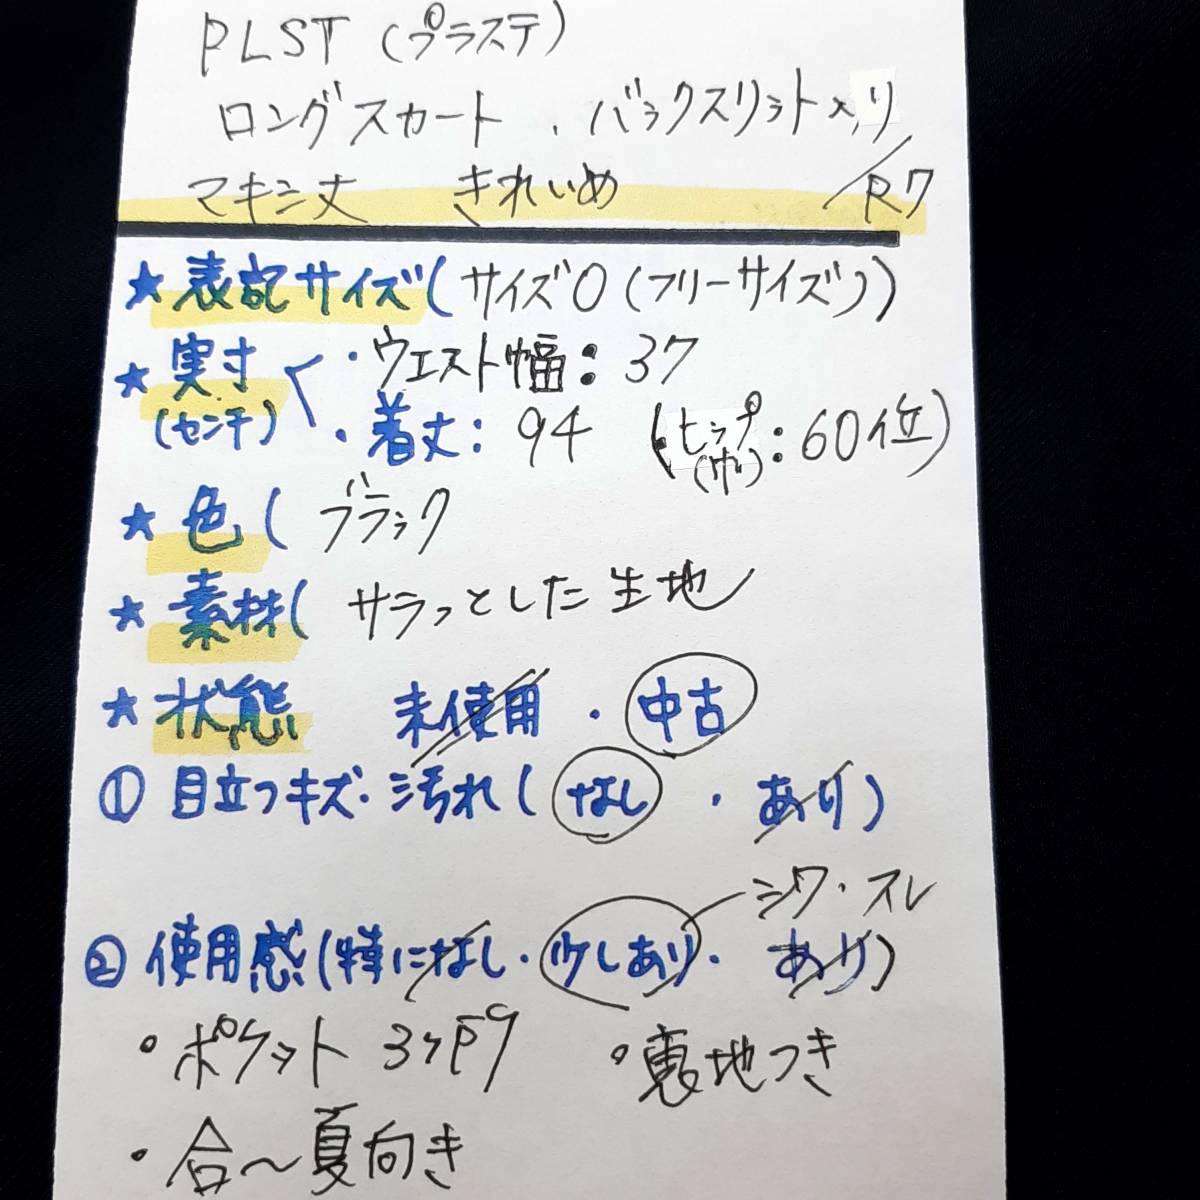 PLST (プラステ)
ロングスカート . バックスリット入り
マキシ丈 きれいめ /R7
★ 表記サイズ ( サイズ0 (フリーサイズ) )
★ 実寸 (センチ) < ・ウエスト幅: 37
・着丈: 94 (・ヒップ(ゆり): 60位)
★ 色 ( ブラック
★ 素材 ( サラっとした生地
★ 状態 未使用 ・ 中古
① 目立つキズ・汚れ ( なし ・ あり )
シワ・スレ
② 使用感 (特になし・少しあり・ あり)
・ポケット 3ヶ所 ・裏地つき
・合〜夏向き